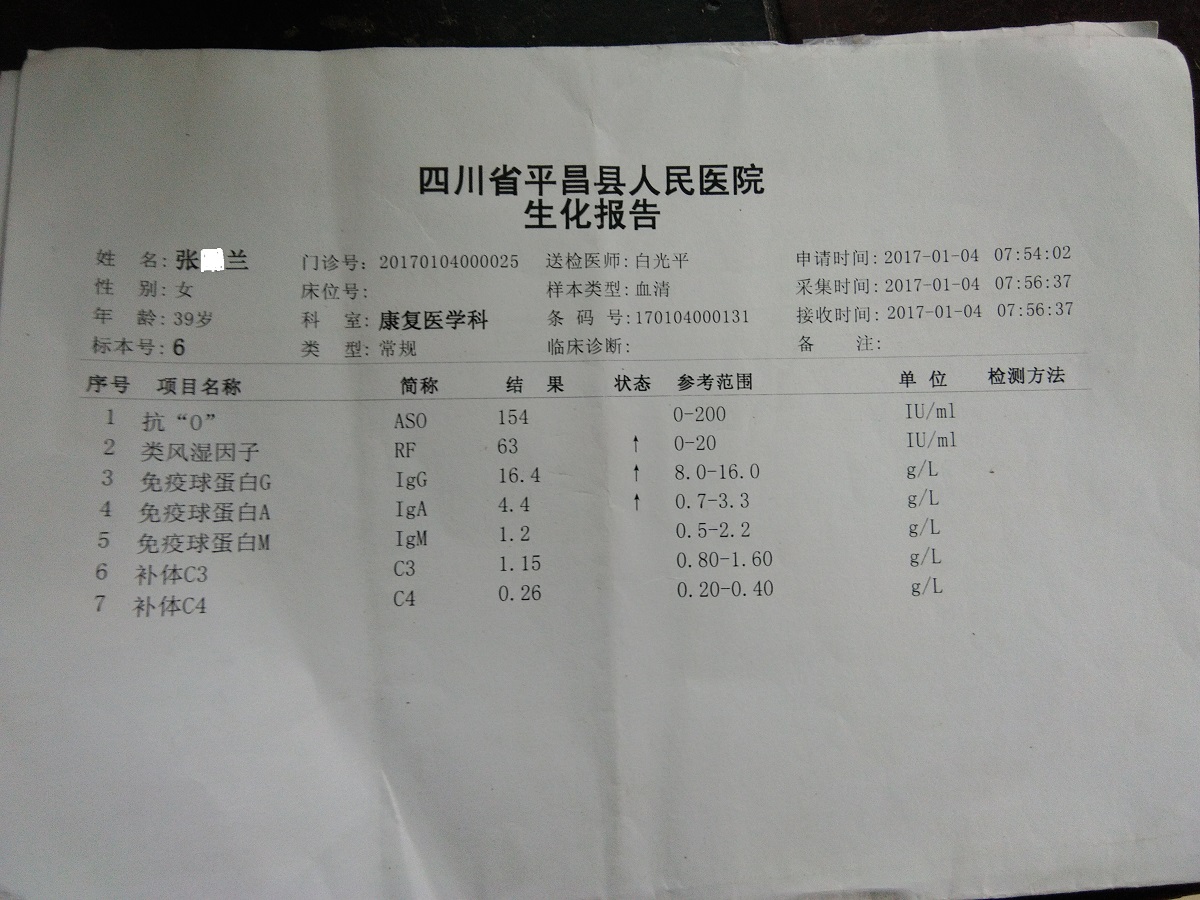 四川省平昌县人民医院
生化报告
姓 名: 张 兰 门诊号: 20170104000025 送检医师: 白光平 申请时间: 2017-01-04 07:54:02
性 别: 女 床位号: 样本类型: 血清 采集时间: 2017-01-04 07:56:37
年 龄: 39岁 科 室: 康复医学科 条 码 号: 170104000131 接收时间: 2017-01-04 07:56:37
标本号: 6 类 型: 常规 临床诊断: 备 注:
序号 项目名称 简称 结 果 状态 参考范围 单 位 检测方法
1 抗“O” ASO 154 0-200 IU/ml
2 类风湿因子 RF 63 ↑ 0-20 IU/ml
3 免疫球蛋白G IgG 16.4 ↑ 8.0-16.0 g/L
4 免疫球蛋白A IgA 4.4 ↑ 0.7-3.3 g/L
5 免疫球蛋白M IgM 1.2 0.5-2.2 g/L
6 补体C3 C3 1.15 0.80-1.60 g/L
7 补体C4 C4 0.26 0.20-0.40 g/L